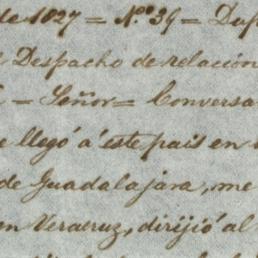 de 1827 = N.º 39 = Dup
Despacho de relacion
= Señor = Conversa
llegó á este pais en
de Guadalajara, me
en Veracruz, dirijió al